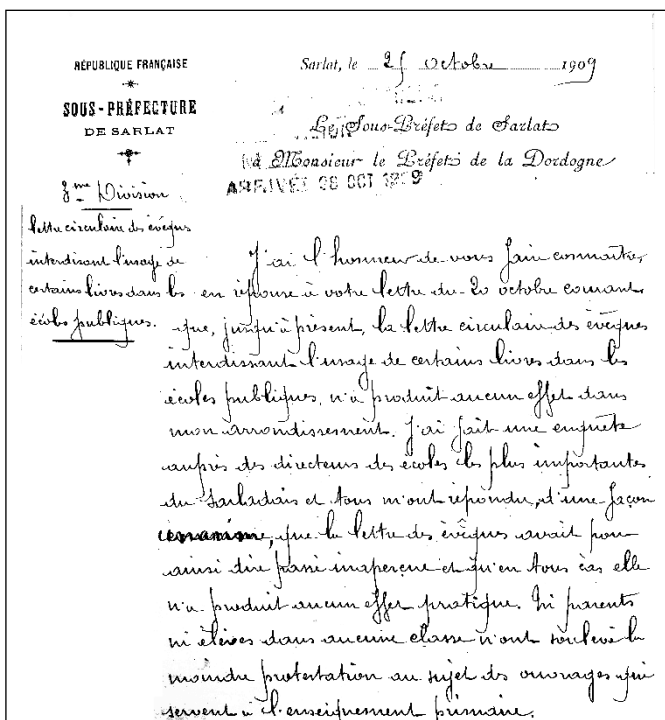 RÉPUBLIQUE FRANÇAISE
SOUS-PRÉFECTURE
DE SARLAT
3me Division
lettre circulaire des évêques
interdisant l'usage de
certains livres dans les
écoles publiques.
Sarlat, le 25 octobre 1909
Le Sous-Préfet de Sarlat
à Monsieur le Préfet de la Dordogne
ARRIVÉE OCT 1909
J'ai l'honneur de vous faire connaître,
en réponse à votre lettre du 20 octobre courant
que, jusqu'à présent, la lettre circulaire des évêques
interdissant l'usage de certains livres dans les
écoles publiques, n'a produit aucun effet dans
mon arrondissement. J'ai fait une enquête
auprès des directeurs des écoles les plus importantes
du Sarladais et tous m'ont répondu, d'une façon
unanime, que la lettre des évêques avait pour
ainsi dire passé inaperçue et qu'en tous cas elle
n'a produit aucun effet pratique. Ni parents
ni élèves dans aucune classe n'ont soulevé la
moindre protestation au sujet des ouvrages qui
servent à l'enseignement primaire.